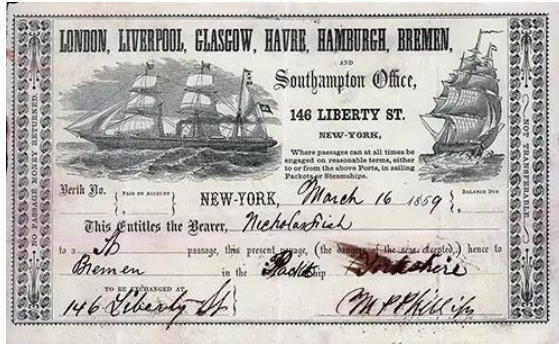 LONDON, LIVERPOOL, GLASGOW, HAVRE, HAMBURGH, BREMEN,
AND
Southampton Office,
146 LIBERTY ST.
NEW-YORK,
Where passages can at all times be
engaged on reasonable terms, either
to or from the above Ports, in sailing
Packets or Steamships.
NO PASSAGE MONEY RETURNED.
NOT TRANSFERABLE.
Berth No. PAID ON ACCOUNT NEW-YORK, March 16 1859 BALANCE DUE
This Entitles the Bearer, Nicholas Fish
to a passage, this present voyage, (the dangers of the seas excepted,) hence to
Bremen in the Packet ship Yorkshire
TO BE EXCHANGED AT
146 Liberty St M P Phillips